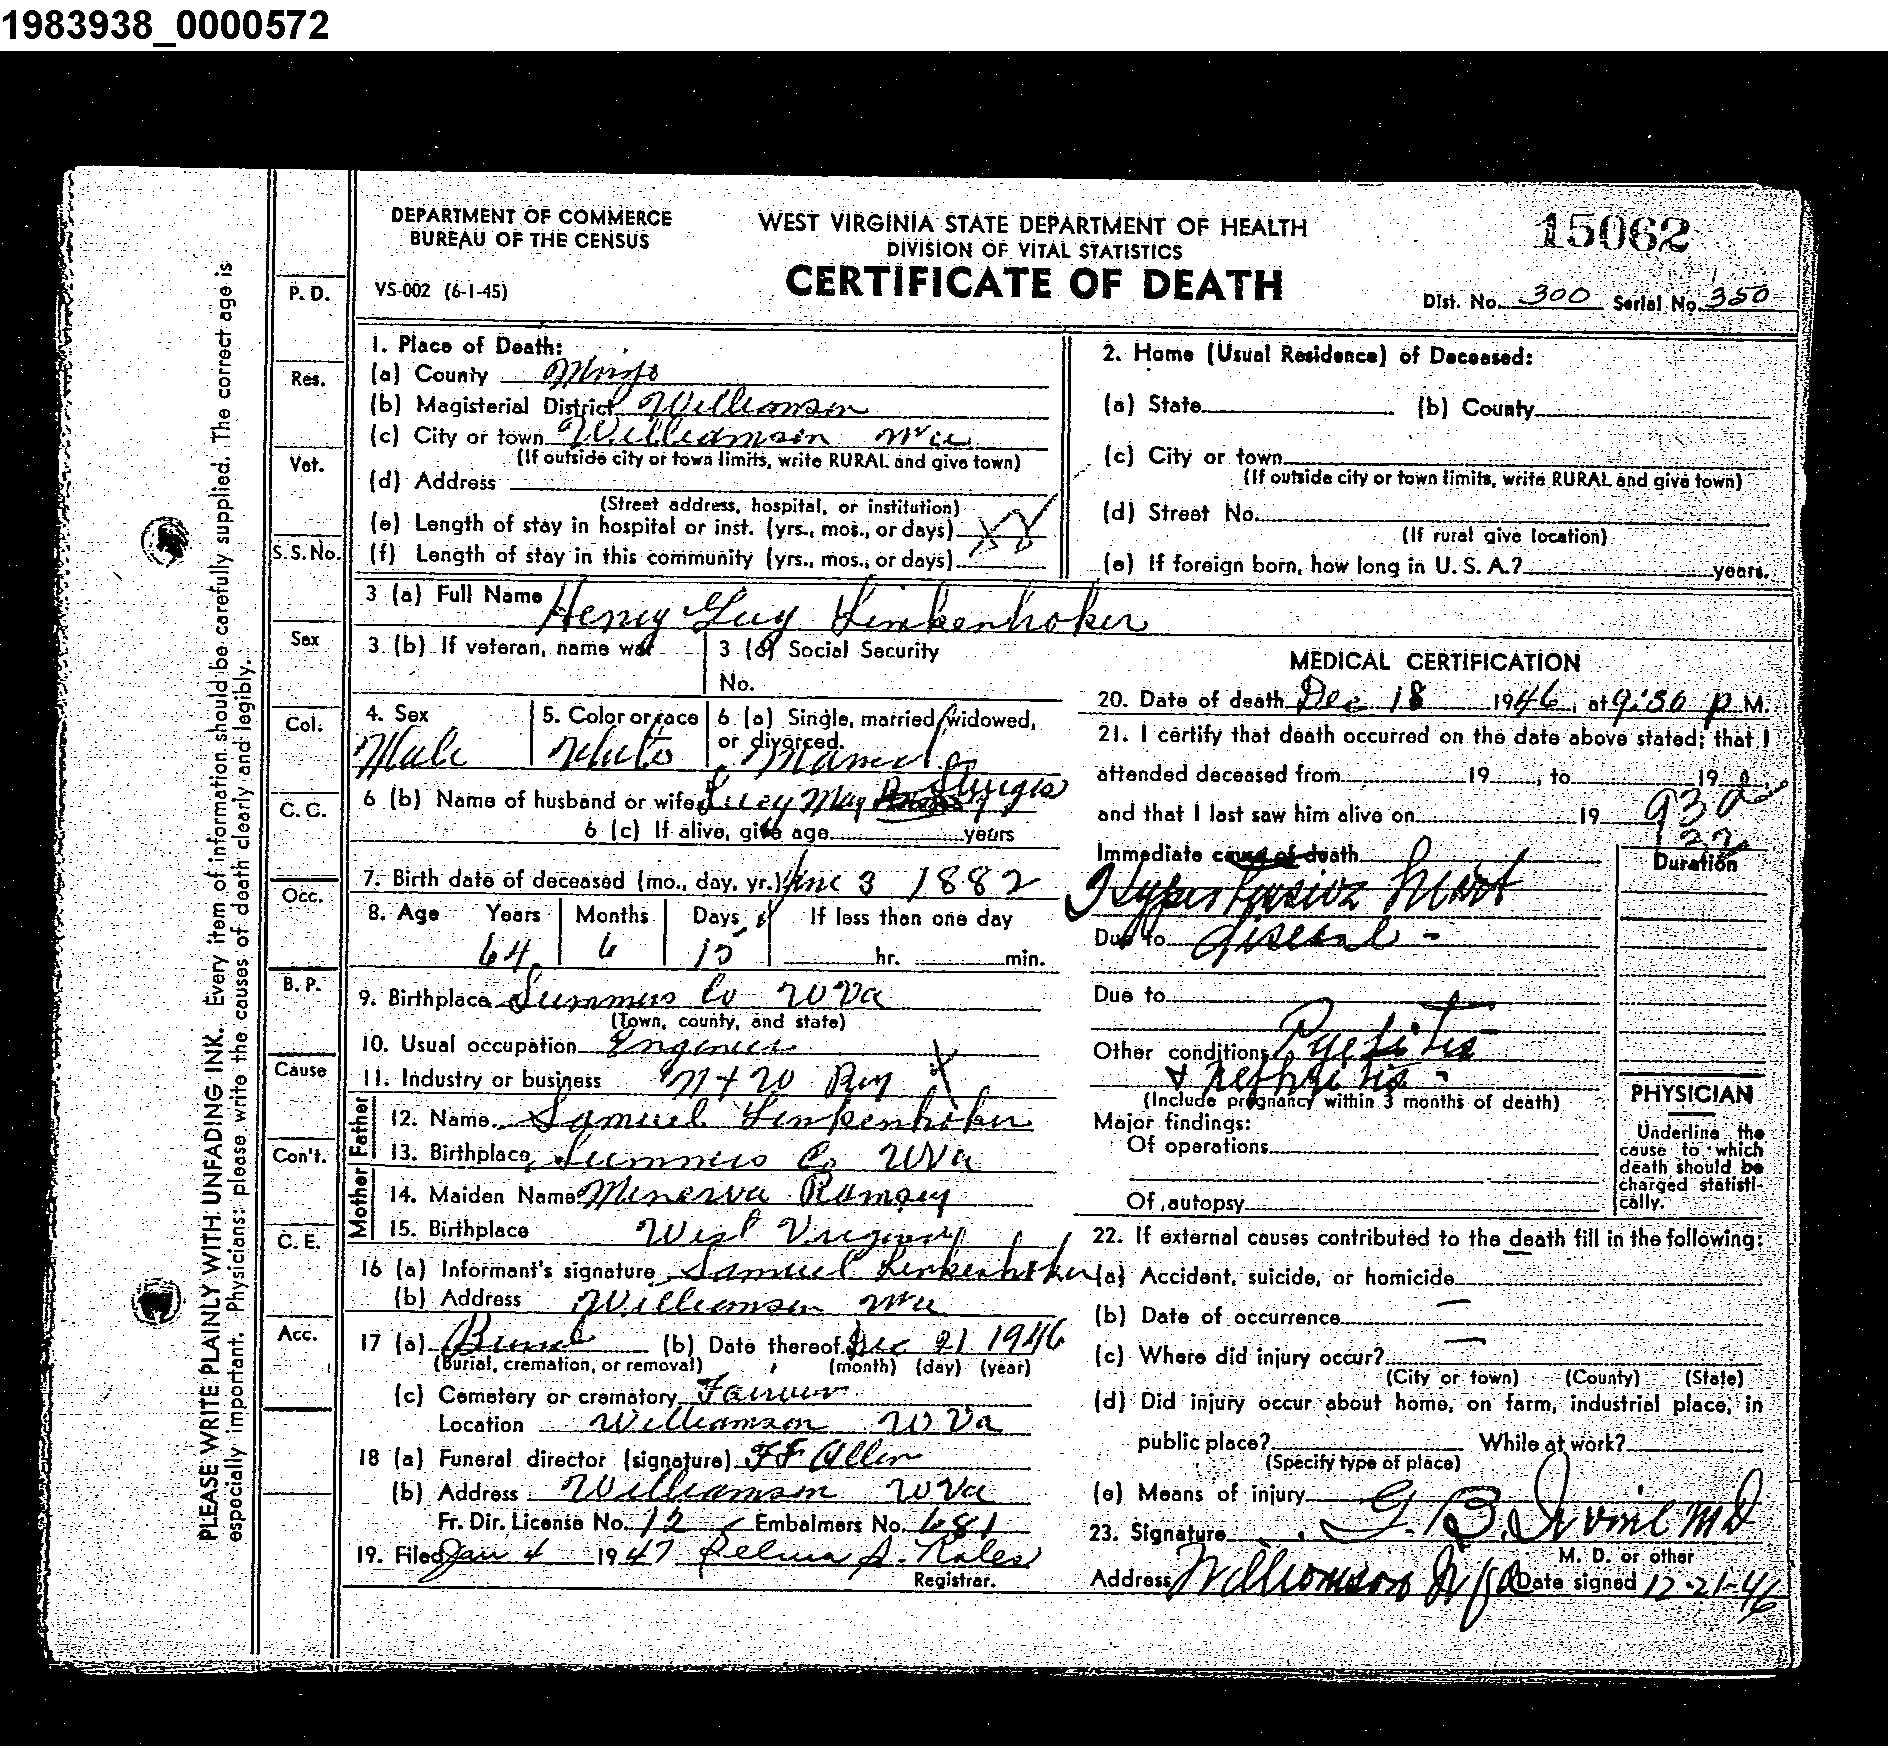 1983938_0000572
DEPARTMENT OF COMMERCE
BUREAU OF THE CENSUS
VS-002 (6-1-45)
WEST VIRGINIA STATE DEPARTMENT OF HEALTH
DIVISION OF VITAL STATISTICS
CERTIFICATE OF DEATH
15062
Dist. No. 300 Serial No. 350
PLEASE WRITE PLAINLY WITH UNFADING INK. Every item of information should be carefully supplied. The correct age is
especially important. Physicians: please write the causes of death clearly and legibly.
P. D.
Res.
Vet.
S.S. No.
Sex
Col.
C. C.
Occ.
B. P.
Cause
Con't.
C. E.
Acc.
1. Place of Death:
(a) County Mingo
(b) Magisterial District Williamson
(c) City or town Williamson WVa
(If outside city or town limits, write RURAL and give town)
(d) Address
(Street address, hospital, or institution)
(e) Length of stay in hospital or inst. (yrs., mos., or days)
(f) Length of stay in this community (yrs., mos., or days)
2. Home (Usual Residence) of Deceased:
(a) State (b) County
(c) City or town
(If outside city or town limits, write RURAL and give town)
(d) Street No.
(If rural give location)
(e) If foreign born, how long in U. S. A.? years.
3 (a) Full Name Henry Guy Linkenhoker
3 (b) If veteran, name war
3 (c) Social Security
No.
4. Sex
Male
5. Color or race
White
6 (a) Single, married, widowed,
or divorced.
Married
6 (b) Name of husband or wife Lucy May Sturgis
6 (c) If alive, give age years
7. Birth date of deceased (mo., day, yr.) June 3 1882
8. Age Years Months Days If less than one day
64 6 15 hr. min.
9. Birthplace Summers Co WVa
(Town, county, and state)
10. Usual occupation Engineer
11. Industry or business N+W Ry
Father
12. Name Samuel Linkenhoker
13. Birthplace Summers Co WVa
Mother
14. Maiden Name Minerva Ramsey
15. Birthplace West Virginia
16 (a) Informant's signature Samuel Linkenhoker
(b) Address Williamson WVa
17 (a) Burial (b) Date thereof Dec 21 1946
(Burial, cremation, or removal) (month) (day) (year)
(c) Cemetery or crematory Fairview
Location Williamson WVa
18 (a) Funeral director (signature) FF Allen
(b) Address Williamson WVa
Fr. Dir. License No. 12 Embalmers No. 681
19. Filed Jan 4 1947
Registrar.
MEDICAL CERTIFICATION
20. Date of death Dec 18 1946, at 9:30 P M.
21. I certify that death occurred on the date above stated; that I
attended deceased from 19 , to 19
and that I last saw him alive on 19
930
132
Immediate cause of death
Duration
Hypertensive heart
Due to disease -
Due to
Other conditions Pyelitis
& nephritis -
(Include pregnancy within 3 months of death)
Major findings:
Of operations
Of autopsy
PHYSICIAN
Underline the
cause to which
death should be
charged statisti-
cally.
22. If external causes contributed to the death fill in the following:
(a) Accident, suicide, or homicide
(b) Date of occurrence
(c) Where did injury occur?
(City or town) (County) (State)
(d) Did injury occur about home, on farm, industrial place, in
public place? While at work?
(Specify type of place)
(e) Means of injury
23. Signature G. B. Irvine MD
M. D. or other
Address Williamson WVa Date signed 12-21-46